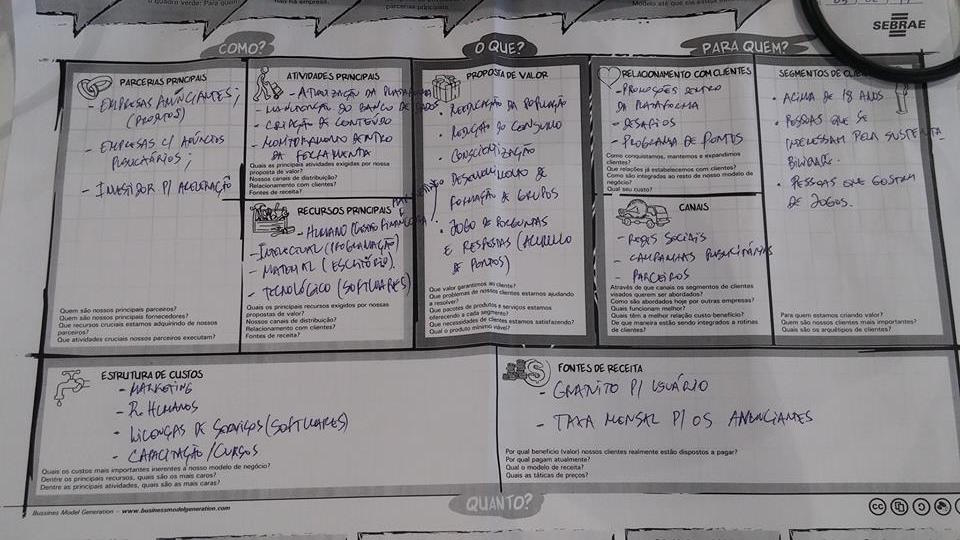 SEBRAE
COMO?
O QUE?
PARA QUEM?
PARCERIAS PRINCIPAIS
- EMPRESAS ANUNCIANTES;
(PRODUTOS)
- EMPRESAS C/ ANÚNCIOS
PUBLICITÁRIOS;
- INVESTIDOR P/ ACELERAÇÃO
Quem são nossos principais parceiros?
Quem são nossos principais fornecedores?
Que recursos cruciais estamos adquirindo de nossos
parceiros?
Que atividades cruciais nossos parceiros executam?
ATIVIDADES PRINCIPAIS
- ATUALIZAÇÃO DA PLATAFORMA
- MANUTENÇÃO DO BANCO DE DADOS
- CRIAÇÃO DE CONTEÚDO
- MONITORAMENTO DENTRO
DA FERRAMENTA
Quais as principais atividades exigidas por nossa
proposta de valor?
Nossos canais de distribuição?
Relacionamento com clientes?
Fontes de receita?
RECURSOS PRINCIPAIS
- HUMANO (GESTÃO FINANCEIRA
- INTELECTUAL (PROGRAMAÇÃO)
- MATERIAL (ESCRITÓRIO).
- TECNOLÓGICO (SOFTWARES)
Quais os principais recursos exigidos por nossas
propostas de valor?
Nossos canais de distribuição?
Relacionamento com clientes?
Fontes de receita?
PROPOSTA DE VALOR
- REEDUCAÇÃO DA POPULAÇÃO
- REDUÇÃO DO CONSUMO
- CONSCIENTIZAÇÃO
- DESENVOLVIMENTO DE
FORMAÇÃO DE GRUPOS
- JOGO DE PERGUNTAS
E RESPOSTAS (ACÚMULO
DE PONTOS)
Que valor garantimos ao cliente?
Que problemas de nossos clientes estamos ajudando
a resolver?
Que pacotes de produtos e serviços estamos
oferecendo a cada segmento?
Que necessidades de clientes estamos satisfazendo?
Qual o produto mínimo viável?
RELACIONAMENTO COM CLIENTES
- PROMOÇÕES DENTRO
DA PLATAFORMA
- DESAFIOS
- PROGRAMA DE PONTOS
Como conquistamos, mantemos e expandimos
clientes?
Que relações já estabelecemos com clientes?
Como são integradas ao resto de nosso modelo de
negócio?
Qual seu custo?
CANAIS
- REDES SOCIAIS
- CAMPANHAS PUBLICITÁRIAS
- PARCEIROS
Através de que canais os segmentos de clientes
visados querem ser abordados?
Como são abordados hoje por outras empresas?
Quais funcionam melhor?
Quais têm a melhor relação custo benefício?
De que maneira estão sendo integrados a rotinas
de clientes?
SEGMENTOS DE
• ACIMA DE 18 ANOS
• PESSOAS QUE SE
INTERESSAM PELA SUSTENTA-
BILIDADE.
• PESSOAS QUE GOSTAM
DE JOGOS.
Para quem estamos criando valor?
Quem são nossos clientes mais importantes?
Quais são os arquétipos de clientes?
ESTRUTURA DE CUSTOS
- MARKETING
- R. HUMANOS
- LICENÇAS DE SERVIÇOS (SOFTWARES)
- CAPACITAÇÃO/CURSOS
Quais os custos mais importantes inerentes a nosso modelo de negócio?
Dentre os principais recursos, quais são os mais caros?
Dentre as principais atividades, quais são as mais caras?
FONTES DE RECEITA
- GRATUITO P/ USUÁRIO
- TAXA MENSAL P/ OS ANUNCIANTES
Por qual benefício (valor) nossos clientes realmente estão dispostos a pagar?
Por qual pagam atualmente?
Qual o modelo de receita?
Quais as táticas de preços?
QUANTO?
Bussines Model Generation – www.businessmodelgeneration.com